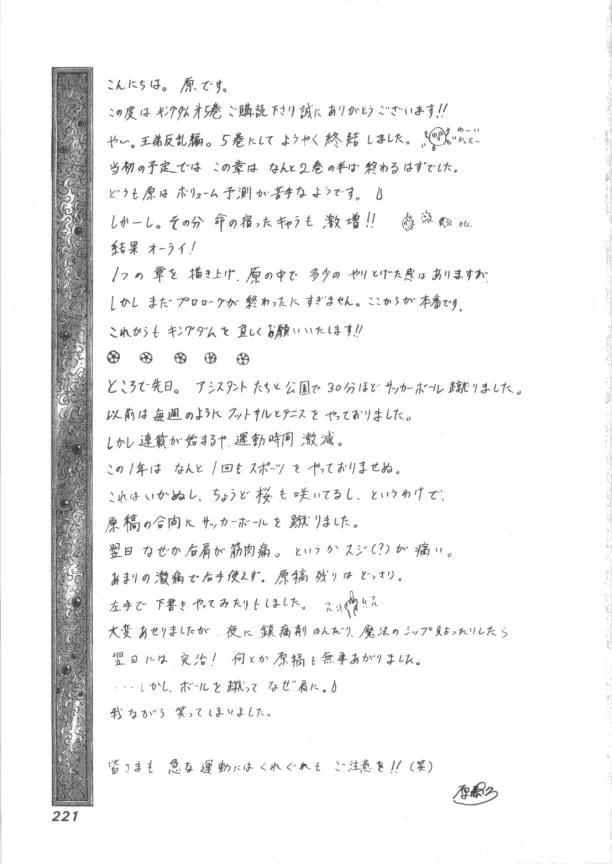 こんにちは。原です。
この度は キングダム第5巻 ご購読下さり誠に ありがとうございます!!
やー。王弟反乱編。5巻にして ようやく 終結しました。
わーい
当初の予定では この章は なんと2巻の半ば 終わるはずでした。
どうも原は ボリューム予測が苦手なようです。
しかーし。その分 命の宿ったキャラも 激増!! etc.
結果 オーライ!
1つの章を 描き上げ、原の中で 多少の やりとげた感は ありますが
しかし まだプロローグが 終わったに すぎません。ここからが 本番です。
これからも キングダムを 宜しくお願いいたします!!
ところで先日。アシスタントたちと公園で 30分ほど サッカーボール 蹴りました。
以前は 毎週のように フットサルとテニスを やっておりました。
しかし 連載が始まるや、運動時間 激減。
この1年は なんと 1回も スポーツを やっておりませぬ。
これはいかぬし、ちょうど 桜も 咲いてるし、というわけで、
原稿の合間に サッカーボールを 蹴りました。
翌日 なぜか 右肩が 筋肉痛。というか スジ(?)が 痛い。
あまりの 激痛で 右手使えず。原稿 残りは どっさり。
左手で 下書き やってみたりもしました。
大変 あせりましたが 夜に 鎮痛剤のんだり、魔法の シップ貼ったりしたら
翌日には 完治! 何とか 原稿も 無事あがりました。
……しかし、ボールを 蹴って なぜ 肩に。
我ながら 笑ってしまいました。
皆さまも 急な 運動には くれぐれも ご注意を!! (笑)
221